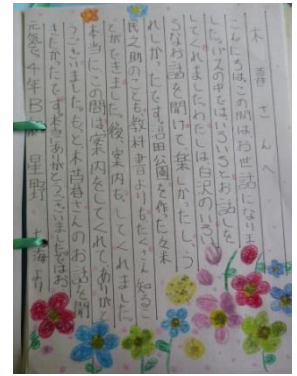 木 春さんへ
こんにちはこの間はお世話になりま
した。バスの中ではいろいろとお話を
してくれましたわたしは白沢のいろい
ろなお話を聞けて楽しかったし、う
れしかったです。沼田公園を作った久米
民之助のことも教科書よりもたくさん知るこ
とができました。後、案内もしてくれました。
本当にこの間は案内をしてくれてありがと
うございました。もっと木 春さんのお話を聞
きたかったです。本当にありがとうございましたではお
元気で4年B 星野 海より